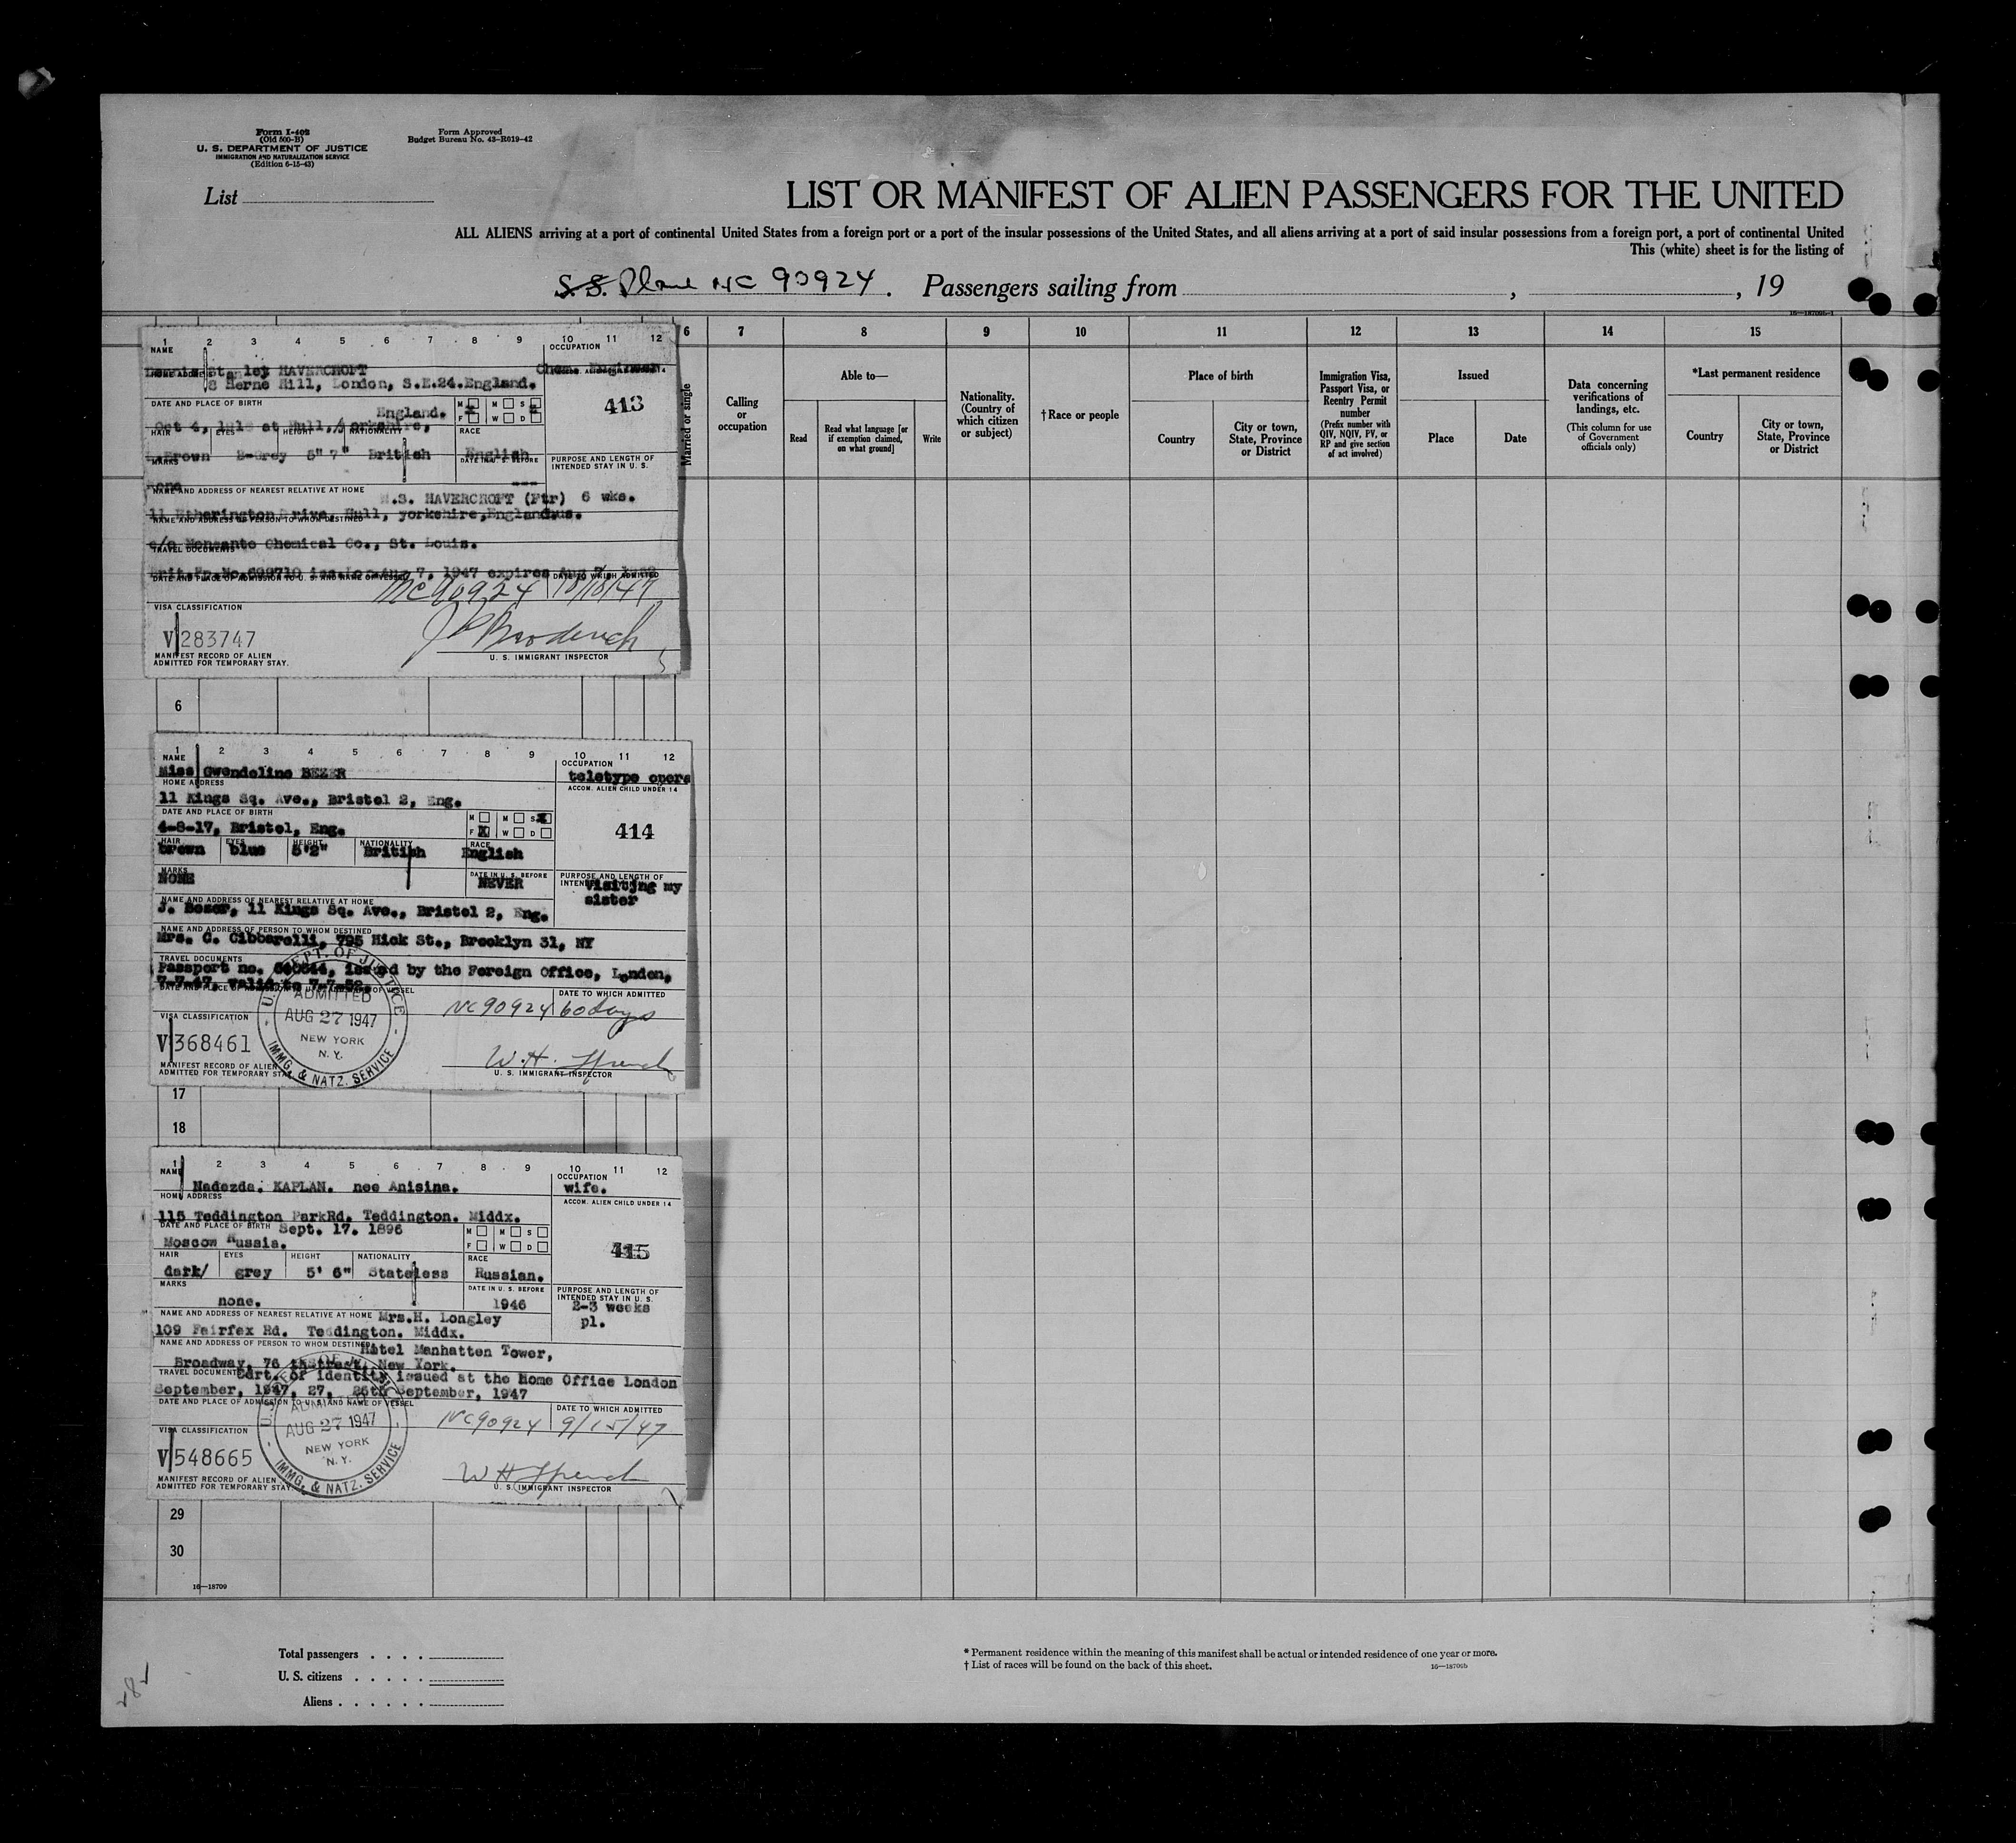 Form I-402
(Old 500-B)
U. S. DEPARTMENT OF JUSTICE
IMMIGRATION AND NATURALIZATION SERVICE
(Edition 6-15-43)
Form Approved
Budget Bureau No. 43-R019-42
List
LIST OR MANIFEST OF ALIEN PASSENGERS FOR THE UNITED
ALL ALIENS arriving at a port of continental United States from a foreign port or a port of the insular possessions of the United States, and all aliens arriving at a port of said insular possessions from a foreign port, a port of continental United
This (white) sheet is for the listing of
S.S. Plane NC 90924. Passengers sailing from , , 19
6 7 8 9 10 11 12 13 14 15
Married or single
Calling or occupation
Able to—
Read
Read what language [or if exemption claimed, on what ground]
Write
Nationality. (Country of which citizen or subject)
†Race or people
Place of birth
Country
City or town, State, Province or District
Immigration Visa, Passport Visa, or Reentry Permit number
(Prefix number with QIV, NQIV, PV, or RP and give section of act involved)
Issued
Place
Date
Data concerning verifications of landings, etc.
(This column for use of Government officials only)
*Last permanent residence
Country
City or town, State, Province or District
1 2 3 4 5 6 7 8 9 10 11 12
NAME
OCCUPATION
Stanley HAVERCROFT
8 Herne Hill, London, S.E.24.England.
DATE AND PLACE OF BIRTH
M M S
F W D
413
England.
Oct 4, at Hull, Yorkshire,
HAIR EYES HEIGHT NATIONALITY RACE
Brown B-Grey 5" 7" British English
MARKS
DATE IN U. S. BEFORE
PURPOSE AND LENGTH OF INTENDED STAY IN U. S.
none
---
NAME AND ADDRESS OF NEAREST RELATIVE AT HOME
.S. HAVERCROFT (Ftr) 6 wks.
11 Etherington Drive, Hull, yorkshire,England.
NAME AND ADDRESS OF PERSON TO WHOM DESTINED
c/o Monsanto Chemical Co., St. Louis.
TRAVEL DOCUMENTS
Brit.Pp.No.698710 iss.Lon.Aug 7, 1947 expires Aug 7,
DATE AND PLACE OF ADMISSION TO U. S. AND NAME OF VESSEL
DATE TO WHICH ADMITTED
NC90924 10/18/47
VISA CLASSIFICATION
V 283747
MANIFEST RECORD OF ALIEN
ADMITTED FOR TEMPORARY STAY.
U. S. IMMIGRANT INSPECTOR
6
1 2 3 4 5 6 7 8 9 10 11 12
NAME
OCCUPATION
Miss Gwendoline BEZER
teletype opera
HOME ADDRESS
ACCOM. ALIEN CHILD UNDER 14
11 Kings Sq. Ave., Bristol 2, Eng.
DATE AND PLACE OF BIRTH
M M S X
F X W D
414
4-8-17, Bristol, Eng.
HAIR EYES HEIGHT NATIONALITY RACE
brown blue 5'2" British English
MARKS
DATE IN U. S. BEFORE
PURPOSE AND LENGTH OF
NONE
NEVER
Visiting my
sister
NAME AND ADDRESS OF NEAREST RELATIVE AT HOME
J. Bezer, 11 Kings Sq. Ave., Bristol 2, Eng.
NAME AND ADDRESS OF PERSON TO WHOM DESTINED
Mrs. C. Cibbarelli, 795 Hick St., Brooklyn 31, NY
TRAVEL DOCUMENTS
Passport no. issued by the Foreign Office, London,
7-7-47, valid to 7-7-52.
DATE TO WHICH ADMITTED
NC90924 60 days
U. S. DEPT. OF JUSTICE
ADMITTED
AUG 27 1947
NEW YORK
N. Y.
IMMG. & NATZ. SERVICE
VISA CLASSIFICATION
V 368461
MANIFEST RECORD OF ALIEN
ADMITTED FOR TEMPORARY STAY
W. H.
U. S. IMMIGRANT INSPECTOR
17
18
1 2 3 4 5 6 7 8 9 10 11 12
NAME
OCCUPATION
Nadezda. KAPLAN. nee Anisina.
wife.
HOME ADDRESS
ACCOM. ALIEN CHILD UNDER 14
115 Teddington ParkRd. Teddington. Middx.
DATE AND PLACE OF BIRTH Sept. 17. 1896
M M S
F W D
415
Moscow Russia.
HAIR EYES HEIGHT NATIONALITY RACE
dark/ grey 5' 6" Stateless Russian.
MARKS
DATE IN U. S. BEFORE
PURPOSE AND LENGTH OF INTENDED STAY IN U. S.
none.
1946
2-3 weeks
pl.
NAME AND ADDRESS OF NEAREST RELATIVE AT HOME Mrs.H. Longley
109 Fairfex Rd. Teddington. Middx.
NAME AND ADDRESS OF PERSON TO WHOM DESTINED
Hotel Manhatten Tower,
Broadway, 76 thStreet, New York.
TRAVEL DOCUMENTS
Cert. of identity issued at the Home Office London
September, 1947, 27, 26th September, 1947
DATE AND PLACE OF ADMISSION TO U. S. AND NAME OF VESSEL
DATE TO WHICH ADMITTED
NC90924 9/15/47
ADMITTED
AUG 27 1947
NEW YORK
N. Y.
IMMG. & NATZ. SERVICE
VISA CLASSIFICATION
V 548665
MANIFEST RECORD OF ALIEN
ADMITTED FOR TEMPORARY STAY.
W H
U. S. IMMIGRANT INSPECTOR
29
30
16—18709
Total passengers
U. S. citizens
Aliens
* Permanent residence within the meaning of this manifest shall be actual or intended residence of one year or more.
† List of races will be found on the back of this sheet.